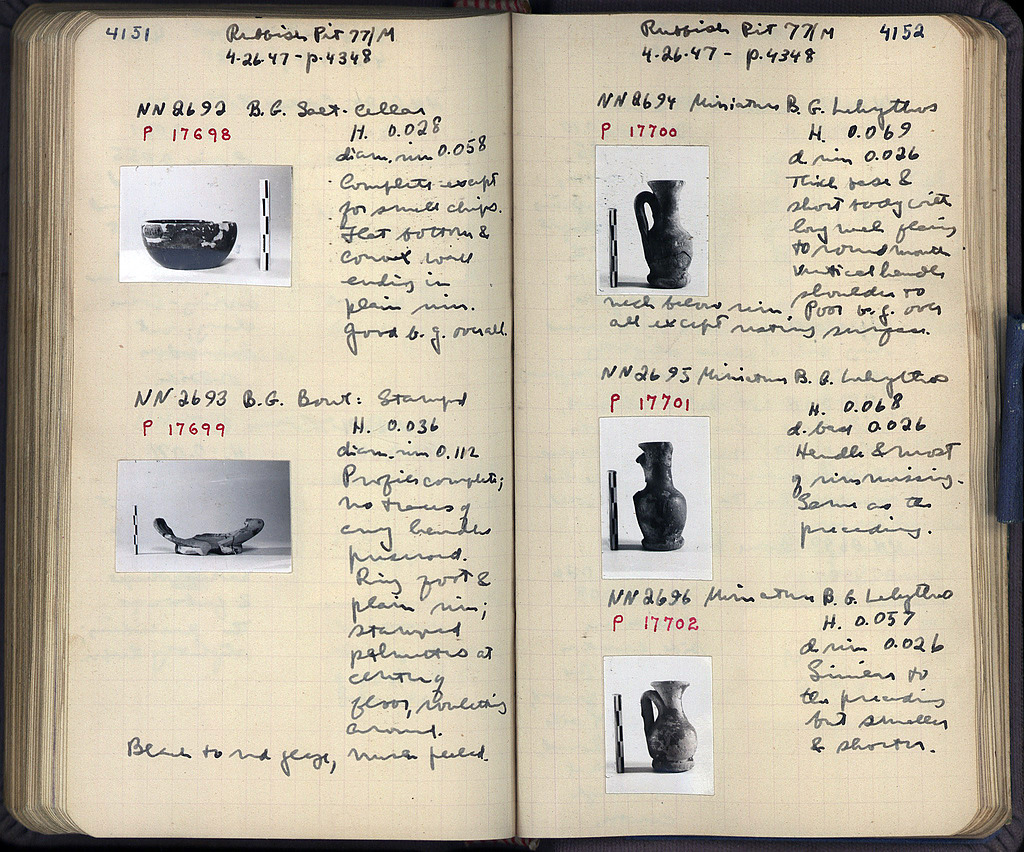 4151
Rubbish Pit 77/M
4·26·47 - p. 4348
NN 2692 B.G. Salt-Cellar
P 17698
H. 0.028
diam. rim 0.058
Complete except
for small chips.
Flat bottom &
convex wall
ending in
plain rim.
Good b.g. overall.
NN 2693 B.G. Bowl: Stamped
P 17699
H. 0.036
diam. rim 0.112
Profile complete;
no traces of
any handles
preserved.
Ring foot &
plain rim;
stamped
palmettes at
center of
floor, rouletting
around.
Black to red glaze, much peeled.
4152
Rubbish Pit 77/M
4·26·47 - p. 4348
NN 2694 Miniature B.G. Lekythos
P 17700
H. 0.069
d. rim 0.026
Thick base &
short body with
long neck flaring
to round mouth
Vertical handle
shoulder to
neck below rim. Poor b.g. over
all except resting surface.
NN 2695 Miniature B.G. Lekythos
P 17701
H. 0.068
d. base 0.026
Handle & most
of rim missing.
Same as the
preceding.
NN 2696 Miniature B.G. Lekythos
P 17702
H. 0.057
d. rim 0.026
Similar to
the preceding
but smaller
& shorter.